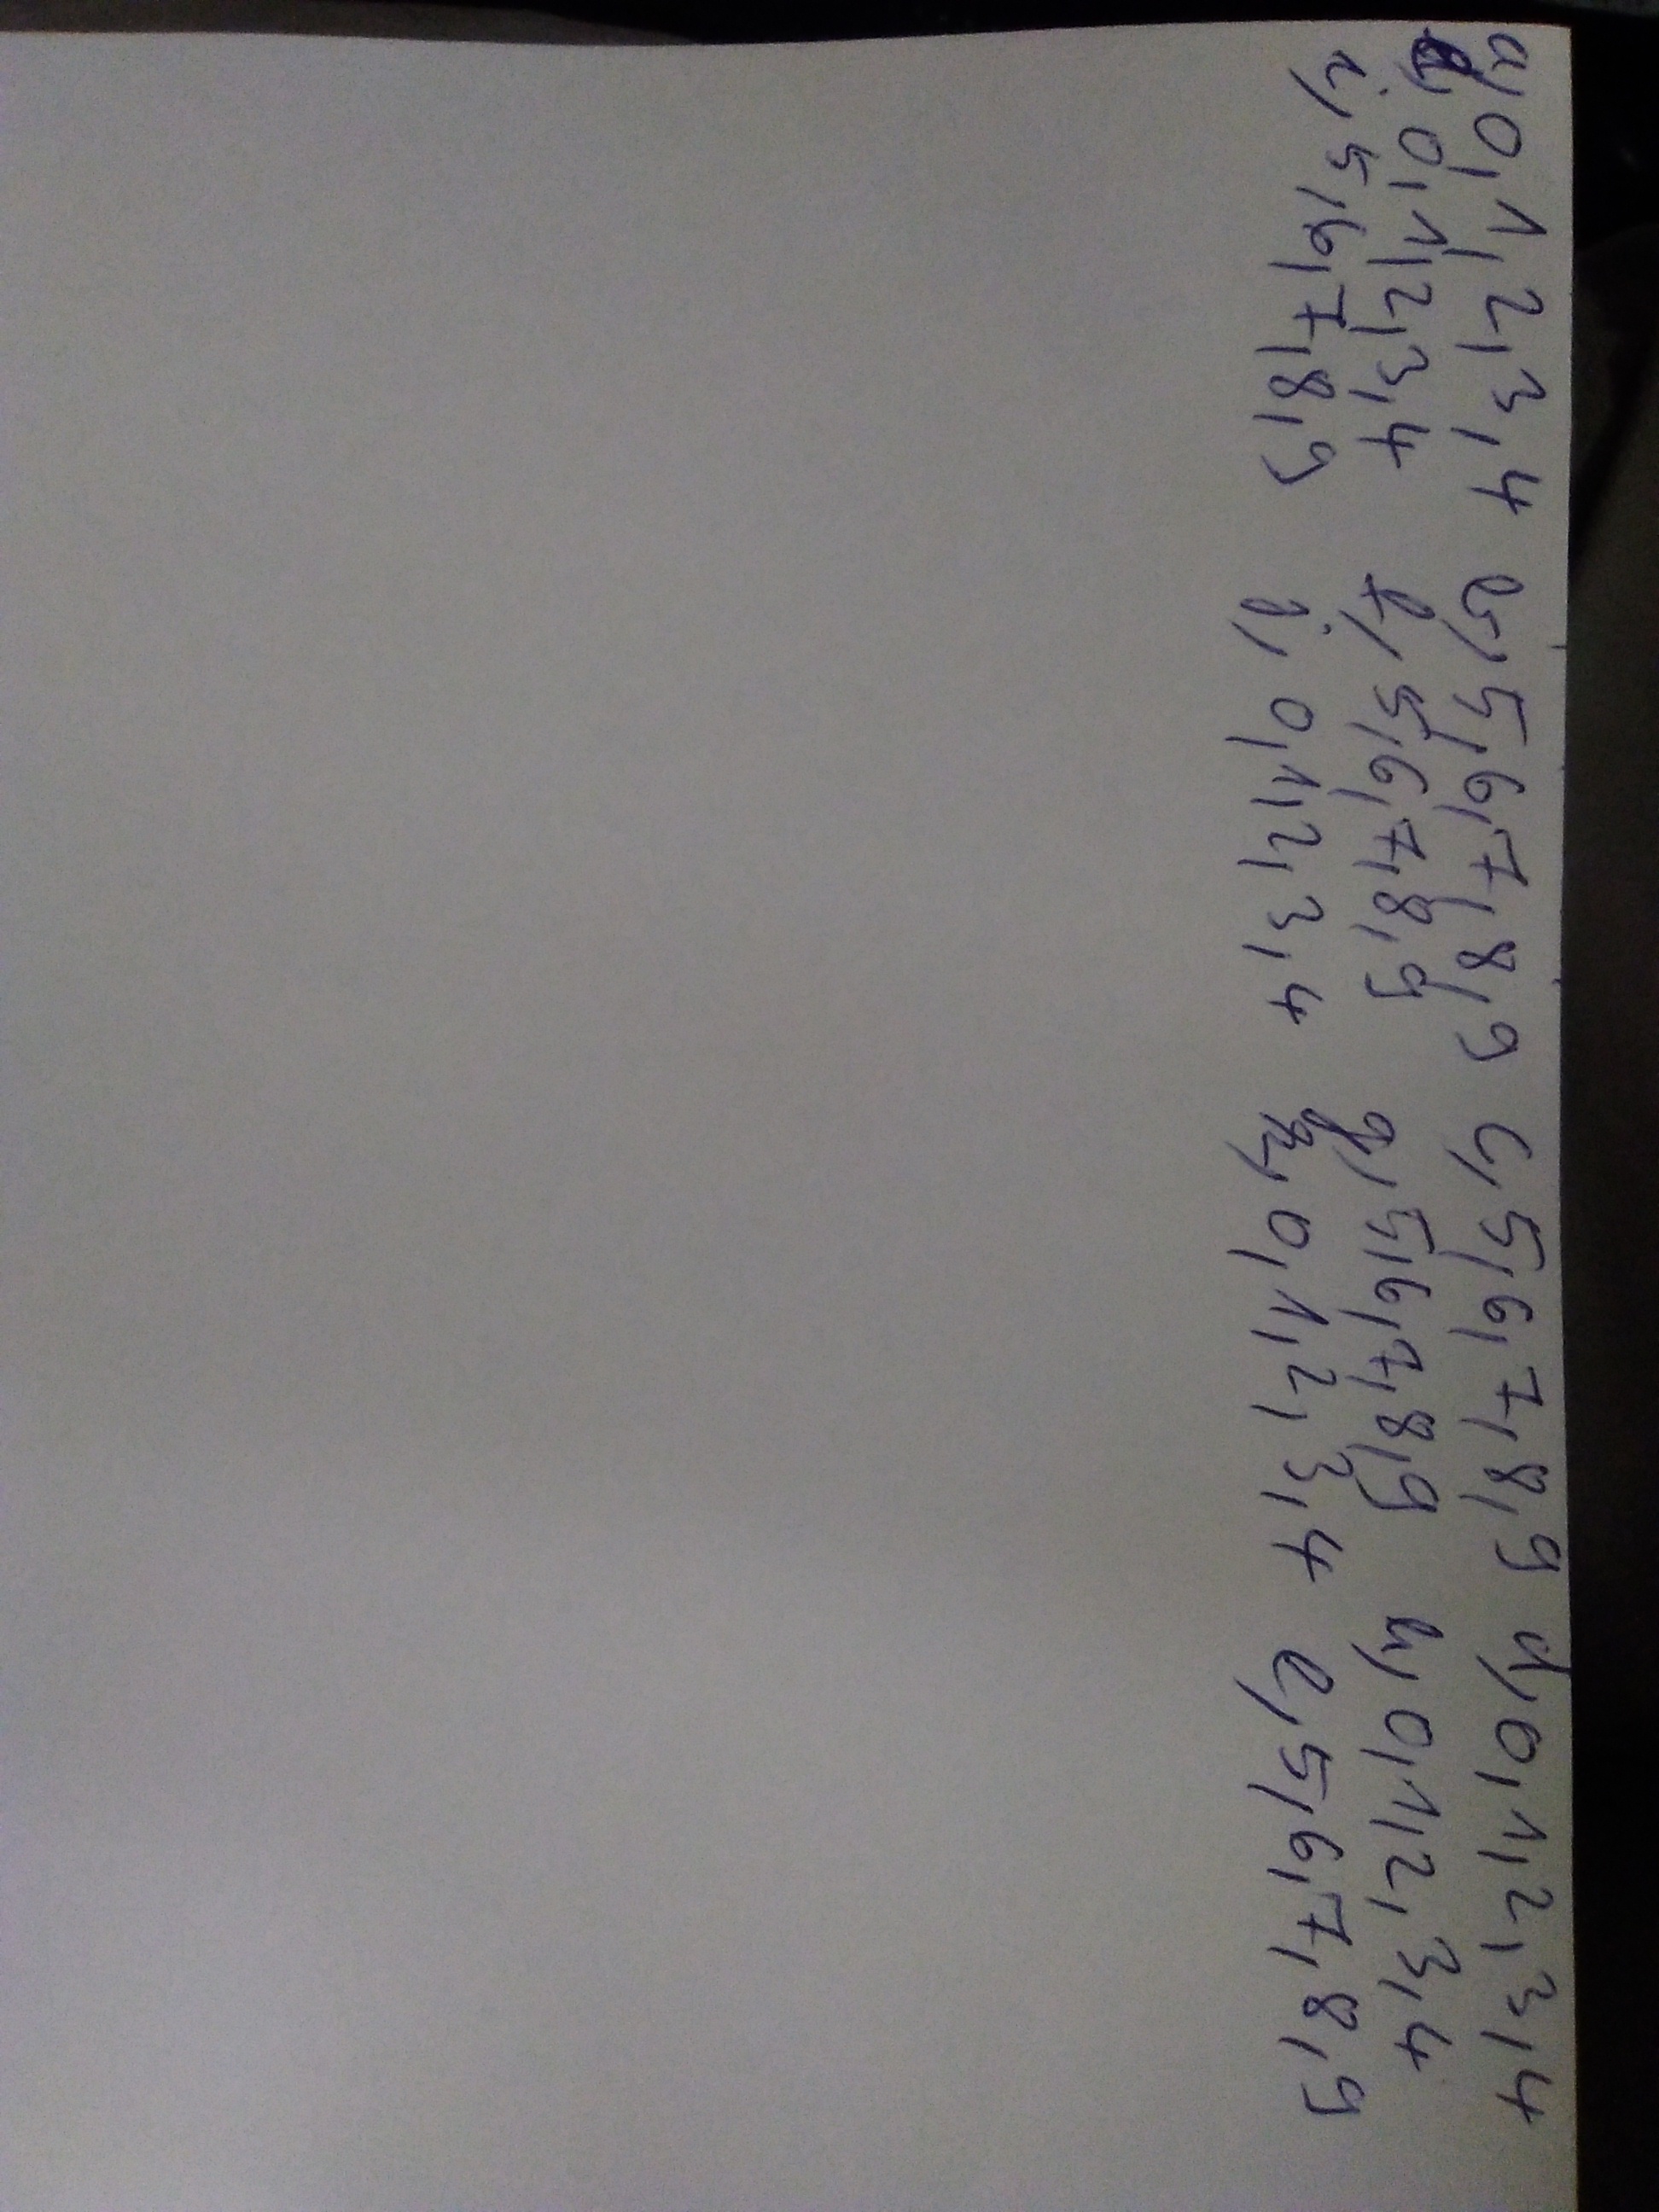 a, 0, 1, 2, 3, 4 b, 5, 6, 7, 8, 9 c, 5, 6, 7, 8, 9 d, 0, 1, 2, 3, 4
e, 0, 1, 2, 3, 4 f, 5, 6, 7, 8, 9 g, 5, 6, 7, 8, 9 h, 0, 1, 2, 3, 4
i, 5, 6, 7, 8, 9 j, 0, 1, 2, 3, 4 k, 0, 1, 2, 3, 4 l, 5, 6, 7, 8, 9